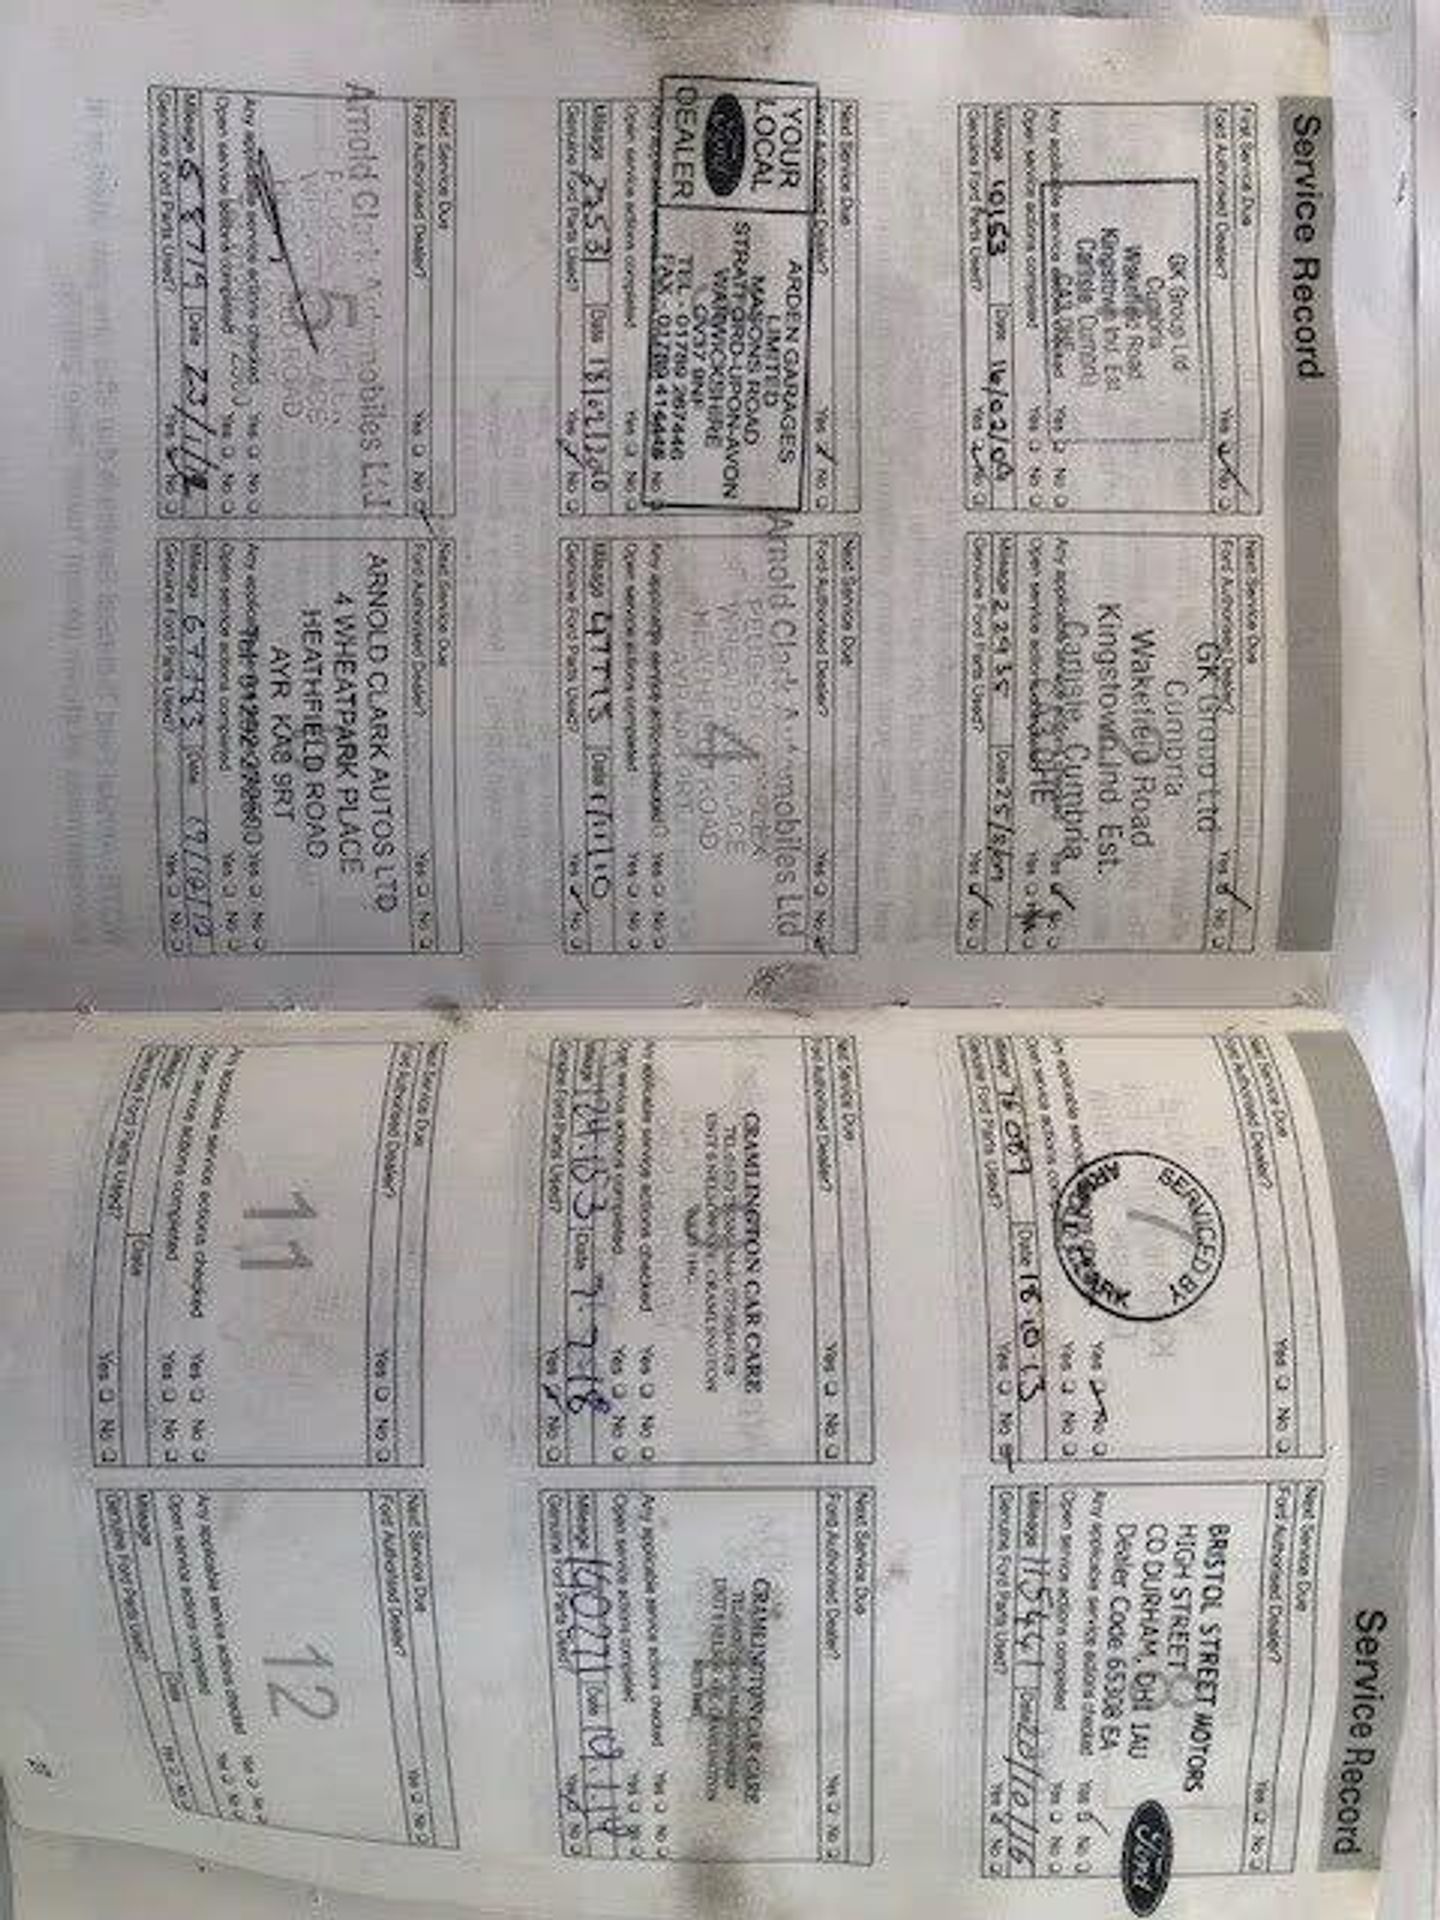 Service Record
First Service Due
Ford Authorised Dealer? Yes No
GK Group Ltd
Cumbria
Wakefield Road
Kingstown Ind. Est.
Carlisle, Cumbria
Any applicable service Yes No
Open service actions completed Yes No
Mileage 10153 Date 16/02/09
Genuine Ford Parts Used? Yes No
Next Service Due
Ford Authorised Dealer? Yes No
GK Group Ltd
Cumbria
Wakefield Road
Kingstown Ind. Est.
Carlisle, Cumbria
Yes No
Open service actions Yes
Mileage 22935 Date 25/8/09
Genuine Ford Parts Used? Yes No
Next Service Due
Ford Authorised Dealer? Yes No
YOUR
LOCAL
Ford
DEALER
ARDEN GARAGES
LIMITED
MASONS ROAD
STRATFORD-UPON-AVON
WARWICKSHIRE
CV37 9NF
TEL - 01789 267446
FAX. 01789 414448 No
Open service actions completed Yes No
Mileage Date
Genuine Ford Parts Used? Yes No
Next Service Due
Ford Authorised Dealer? Yes No
Arnold Clark Automobiles Ltd
4
Any applicable service actions checked Yes No
Open service actions completed Yes No
Mileage Date
Genuine Ford Parts Used? Yes No
Next Service Due
Ford Authorised Dealer? Yes No
Arnold Clark Automobiles Ltd
5
Any applicable service actions checked Yes No
Open service actions completed Yes No
Mileage 58719 Date
Genuine Ford Parts Used? Yes No
Next Service Due
Ford Authorised Dealer? Yes No
ARNOLD CLARK AUTOS LTD
4 WHEATPARK PLACE
HEATHFIELD ROAD
AYR KA8 9RT
Yes No
Open service actions completed Yes No
Mileage 67783 Date
Genuine Ford Parts Used? Yes No
Service Record
Next Service Due
Ford Authorised Dealer? Yes No
SERVICED BY
ARNOLD CLARK
Any applicable service Yes No
Open service actions Yes No
Mileage 76089 Date 18 10 13
Genuine Ford Parts Used? Yes No
Next Service Due
Ford Authorised Dealer? Yes No
BRISTOL STREET MOTORS
HIGH STREET
CO DURHAM, DH1 1AU
Dealer Code 65308 EA
Ford
Any applicable service actions checked Yes No
Open service actions completed Yes No
Mileage 115441 Date 20/10/16
Genuine Ford Parts Used? Yes No
Next Service Due
Ford Authorised Dealer? Yes No
CRAMLINGTON CAR CARE
Any applicable service actions checked Yes No
Open service actions completed Yes No
Mileage 124163 Date 7.2.18
Genuine Ford Parts Used? Yes No
Next Service Due
Ford Authorised Dealer? Yes No
CRAMLINGTON CAR CARE
Any applicable service actions checked Yes No
Open service actions completed Yes No
Mileage 140271 Date
Genuine Ford Parts Used? Yes No
Next Service Due
Ford Authorised Dealer? Yes No
11
Any applicable service actions checked Yes No
Open service actions completed Yes No
Mileage Date
Genuine Ford Parts Used? Yes No
Next Service Due
Ford Authorised Dealer? Yes No
12
Any applicable service actions checked Yes No
Open service actions completed Yes No
Mileage Date
Genuine Ford Parts Used? Yes No